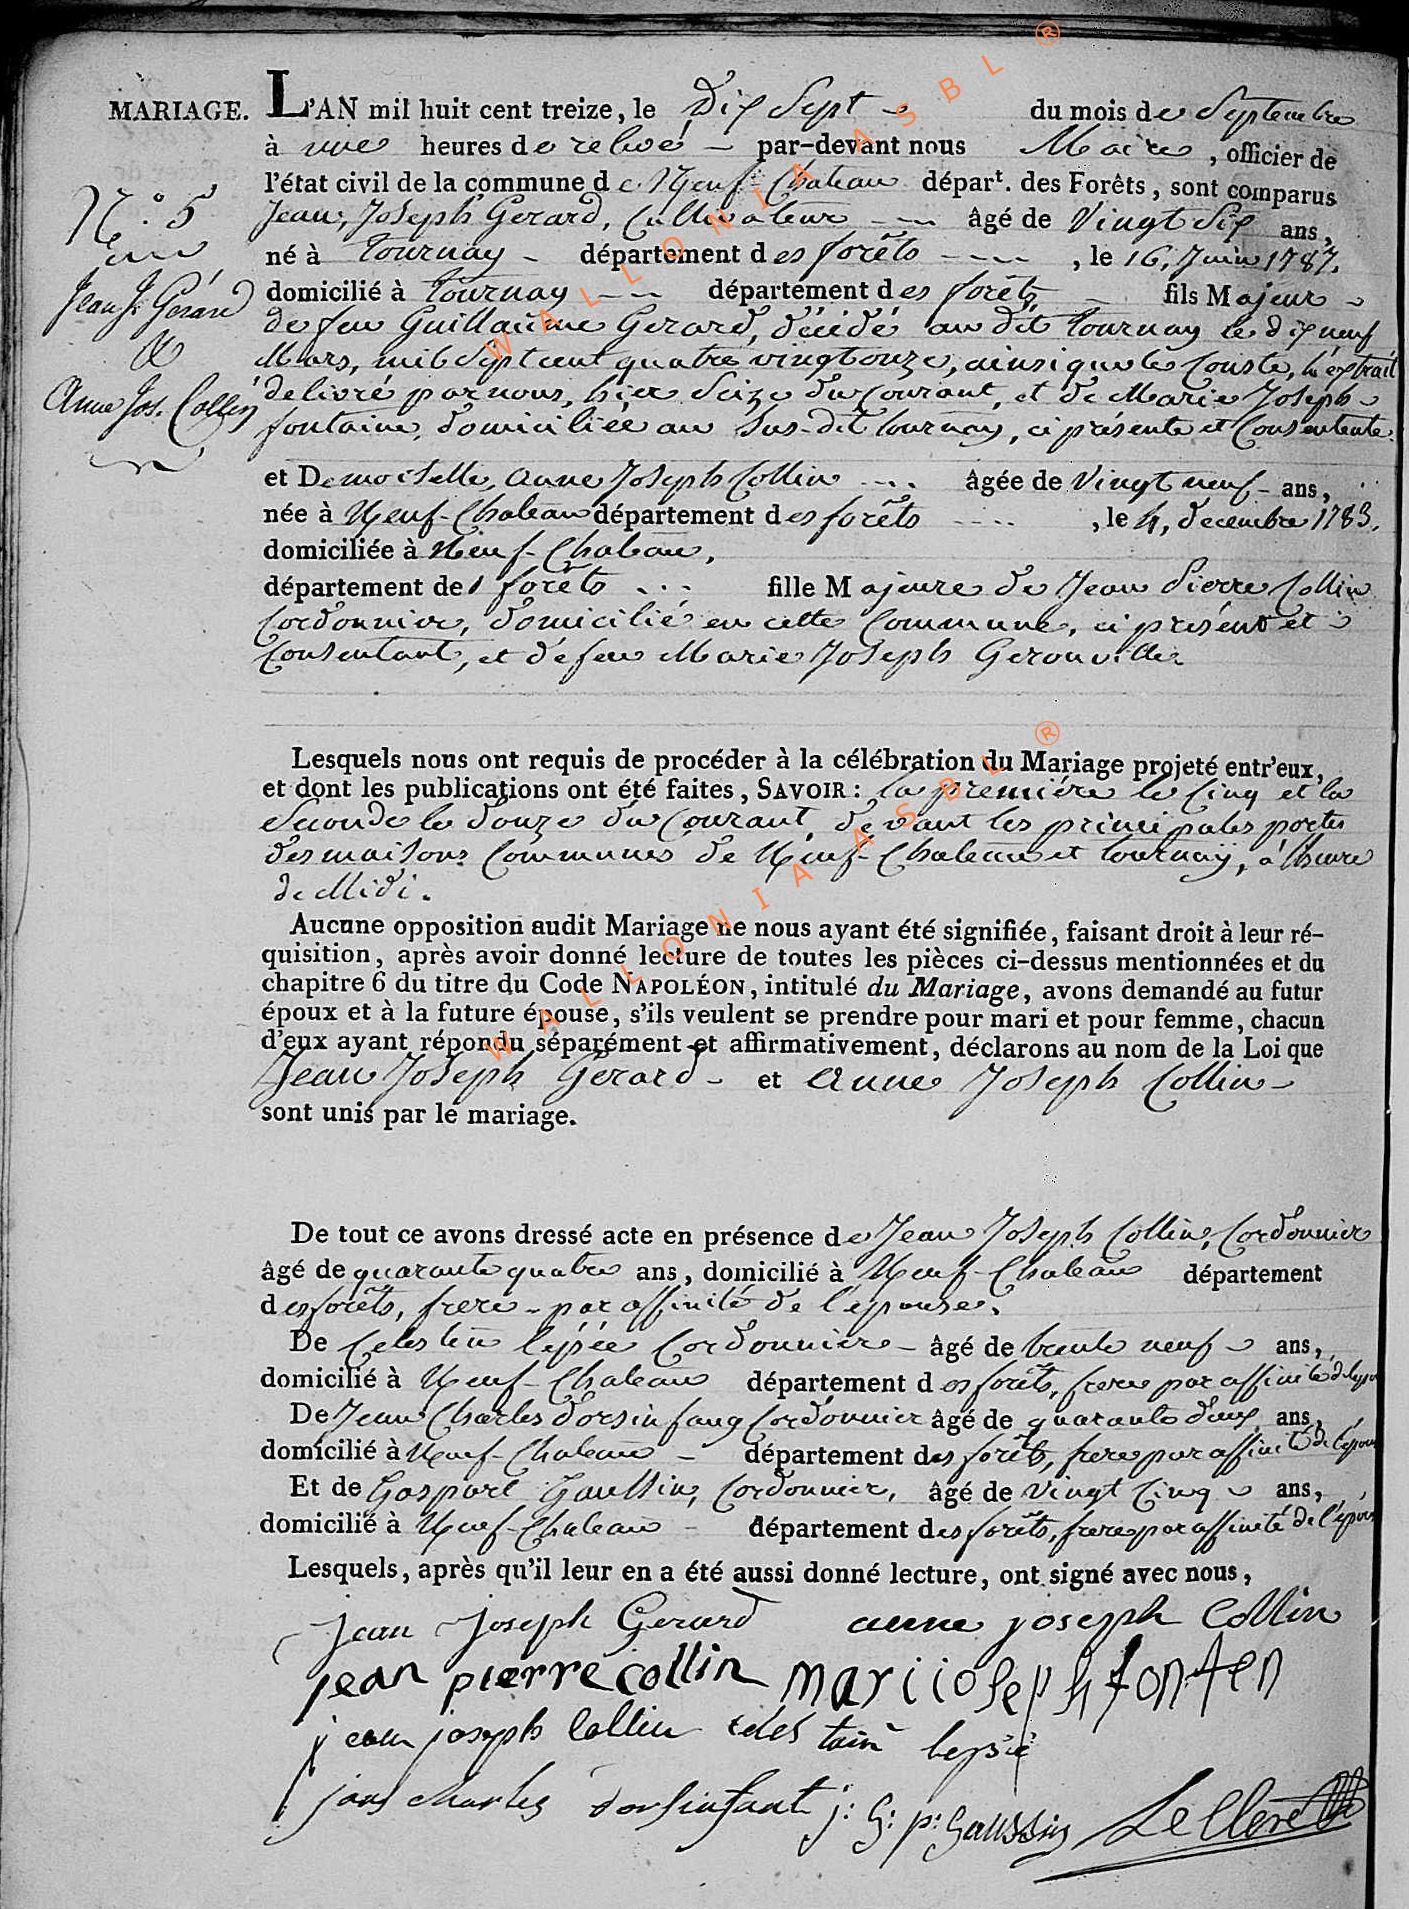 MARIAGE. L'AN mil huit cent treize, le Dix Sept du mois de Septembre
à une heures de relevé par-devant nous Maire, officier de
l'état civil de la commune de Neuf-Chateau départ. des Forêts, sont comparus
N.° 5
Jean, Joseph Gerard, Cultivateur âgé de Vingt Six ans,
né à Tournay département des forêts, le 16, Juin 1787,
Jean J. Gérard
domicilié à Tournay département des forêts, fils Majeur
de feu Guillaume Gerard, décédé au dit Tournay le dix neuf
&
Mars, mil sept cent quatre vingt onze, ainsi que le Conste, l'extrait
Anne Jos. Collin
delivré par nous, hier Seize du courant, et de Marie Joseph
fontaine, domiciliée au Sus-dit Tournay, ci présente et Consentente.
et Demoiselle, Anne Joseph Collin âgée de Vingt neuf ans,
née à Neuf-Chateau département des forêts, le 4, decembre 1783,
domiciliée à Neuf-Chateau,
département des forêts fille Majeure de Jean Pierre Collin
Cordonnier, domicilié en cette Commune, ci présent et
Consentant, et de feu Marie Joseph Gerouville
Lesquels nous ont requis de procéder à la célébration du Mariage projeté entr'eux,
et dont les publications ont été faites, SAVOIR: la première le Cinq et la
Seconde le douze du Courant, devant les principales portes
des maisons Communes de Neuf-Chateau et Tournay, à l'heure
de Midi.
Aucune opposition audit Mariage ne nous ayant été signifiée, faisant droit à leur ré-
quisition, après avoir donné lecture de toutes les pièces ci-dessus mentionnées et du
chapitre 6 du titre du Code NAPOLÉON, intitulé du Mariage, avons demandé au futur
époux et à la future épouse, s'ils veulent se prendre pour mari et pour femme, chacun
d'eux ayant répondu séparément et affirmativement, déclarons au nom de la Loi que
Jean Joseph Gerard et Anne Joseph Collin
sont unis par le mariage.
De tout ce avons dressé acte en présence de Jean Joseph Collin, Cordonnier
âgé de quarante quatre ans, domicilié à Neuf-Chateau département
des forêts, frere par affinité de l'épouse.
De Celestin lepsée Cordonnier âgé de trente neuf ans,
domicilié à Neuf-Chateau département des forêts, frere par affinité de l'epou
De Jean Charles dorsinfang Cordonnier âgé de quarante deux ans,
domicilié à Neuf-Chateau département des forêts, frere par affinité de l'epou
Et de Gaspard Gaussin, Cordonnier, âgé de Vingt Cinq ans,
domicilié à Neuf-Chateau département des forêts, frere par affinité de l'épous
Lesquels, après qu'il leur en a été aussi donné lecture, ont signé avec nous,
jean joseph Gerard anne joseph Collin
jean pierre collin mariioseph fonten
jean joseph Collin seles tain lepsié
jean charles dorsinfant j: G: p: Gaussin LeClerc
WALLONIA ASBL ®
WALLONIA ASBL ®